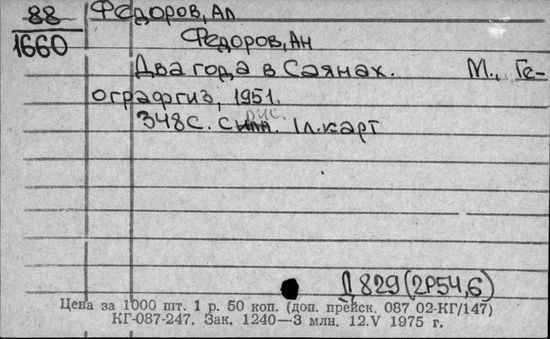 88
1660
Федоров, Ал
Федоров, Ан
Два года в Саянах. М., Ге-
ографгиз, 1951.
348с. с рис. 1л.карт
Д829(2Р54,6)
Цена за 1000 шт. 1 р. 50 коп. (доп. прейск. 087 02-КГ/147)
КГ-087-247. Зак. 1240—3 млн. 12.V 1975 г.